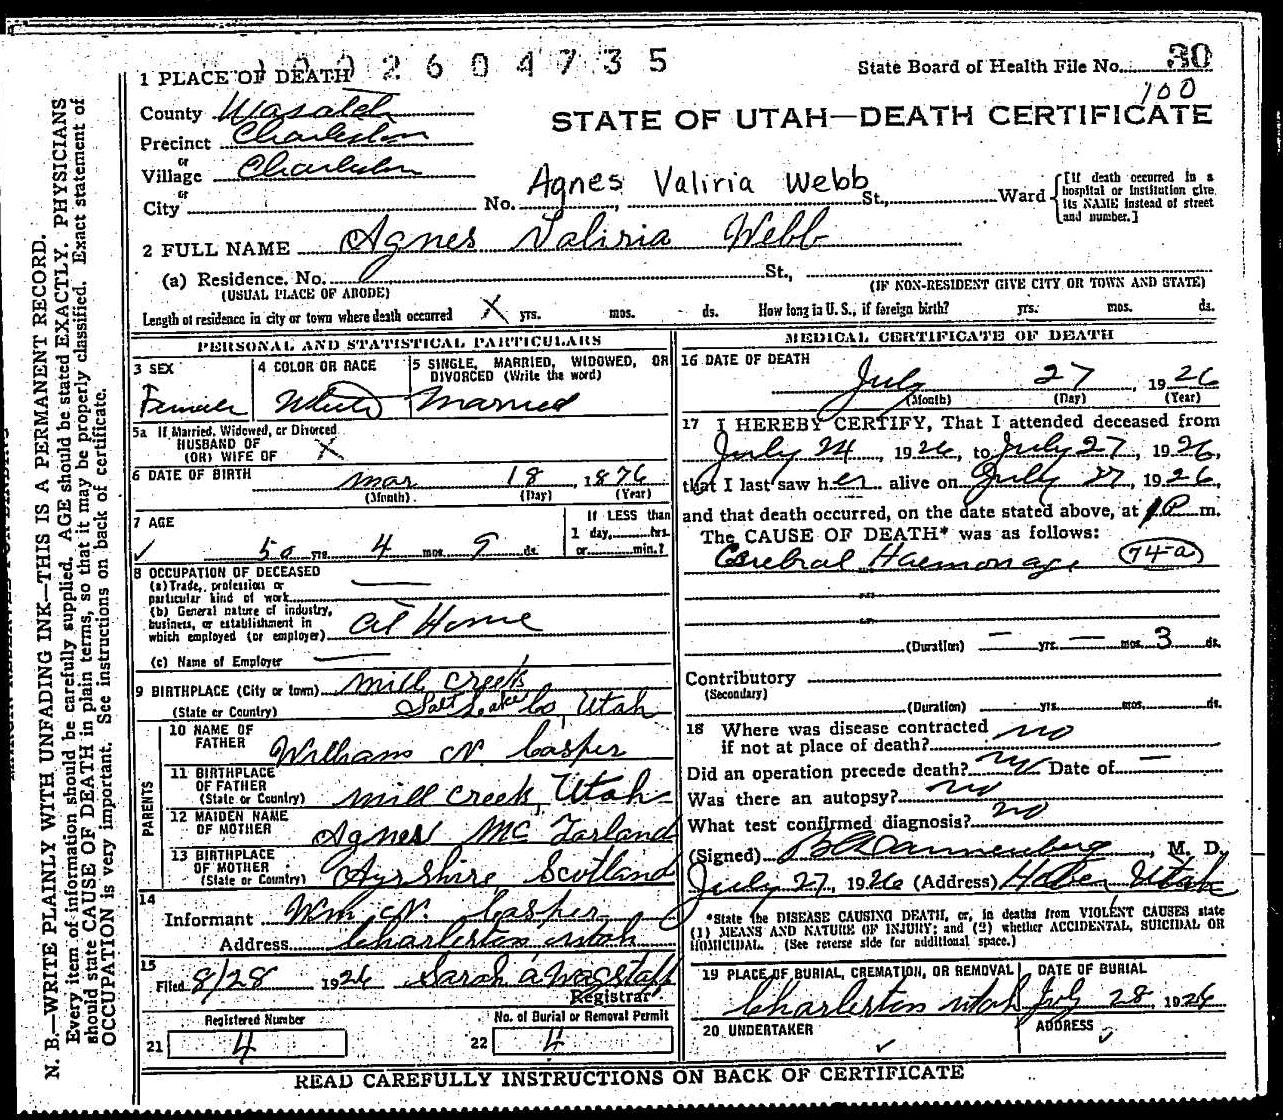 1 PLACE OF DEATH 2604735
State Board of Health File No. 30
100
County Wasatch
STATE OF UTAH—DEATH CERTIFICATE
Precinct Charleston
or
Village Charleston
or
City No. St., Ward
Agnes Valiria Webb
[If death occurred in a hospital or institution give its NAME instead of street and number.]
2 FULL NAME Agnes Valiria Webb
(a) Residence. No. St.,
(USUAL PLACE OF ABODE) (IF NON-RESIDENT GIVE CITY OR TOWN AND STATE)
Length of residence in city or town where death occurred X yrs. mos. ds. How long in U. S., if foreign birth? yrs. mos. ds.
PERSONAL AND STATISTICAL PARTICULARS
3 SEX Female
4 COLOR OR RACE White
5 SINGLE, MARRIED, WIDOWED, OR DIVORCED (Write the word) Married
5a If Married, Widowed, or Divorced
HUSBAND OF
(OR) WIFE OF X
6 DATE OF BIRTH Mar 18, 1876
(Month) (Day) (Year)
7 AGE
50 yrs. 4 mos. 9 ds.
If LESS than
1 day, hrs.
or min.?
8 OCCUPATION OF DECEASED
(a) Trade, profession or
particular kind of work
(b) General nature of industry,
business, or establishment in
which employed (or employer) At Home
(c) Name of Employer
9 BIRTHPLACE (City or town) Mill Creek
(State or Country) Salt Lake Co, Utah
PARENTS
10 NAME OF
FATHER William N. Casper
11 BIRTHPLACE
OF FATHER
(State or Country) Mill Creek, Utah
12 MAIDEN NAME
OF MOTHER Agnes McFarland
13 BIRTHPLACE
OF MOTHER
(State or Country) Ayrshire Scotland
14
Informant Wm. N. Casper
Address Charleston Utah
15
Filed 8/28 1926 Sarah A Wagstaff
Registrar
Registered Number No. of Burial or Removal Permit
21 4 22 4
MEDICAL CERTIFICATE OF DEATH
16 DATE OF DEATH
July 27, 1926
(Month) (Day) (Year)
17 I HEREBY CERTIFY, That I attended deceased from
July 24, 1926, to July 27, 1926,
that I last saw her alive on July 27, 1926,
and that death occurred, on the date stated above, at 1 P m.
The CAUSE OF DEATH* was as follows:
Cerebral Haemorage 74-a
(Duration) — yrs. — mos. 3 ds.
Contributory
(Secondary)
(Duration) yrs. mos. ds.
18 Where was disease contracted
if not at place of death? no
Did an operation precede death? no Date of —
Was there an autopsy? no
What test confirmed diagnosis? no
(Signed) Dannenberg, M. D.
July 27, 1926 (Address) Heber Utah
*State the DISEASE CAUSING DEATH, or, in deaths from VIOLENT CAUSES state
(1) MEANS AND NATURE OF INJURY; and (2) whether ACCIDENTAL, SUICIDAL OR
HOMICIDAL. (See reverse side for additional space.)
19 PLACE OF BURIAL, CREMATION, OR REMOVAL DATE OF BURIAL
Charleston Utah July 28 1926
20 UNDERTAKER ADDRESS
READ CAREFULLY INSTRUCTIONS ON BACK OF CERTIFICATE
N. B.—WRITE PLAINLY WITH UNFADING INK—THIS IS A PERMANENT RECORD.
Every item of information should be carefully supplied. AGE should be stated EXACTLY. PHYSICIANS
should state CAUSE OF DEATH in plain terms, so that it may be properly classified. Exact statement of
OCCUPATION is very important. See instructions on back of certificate.